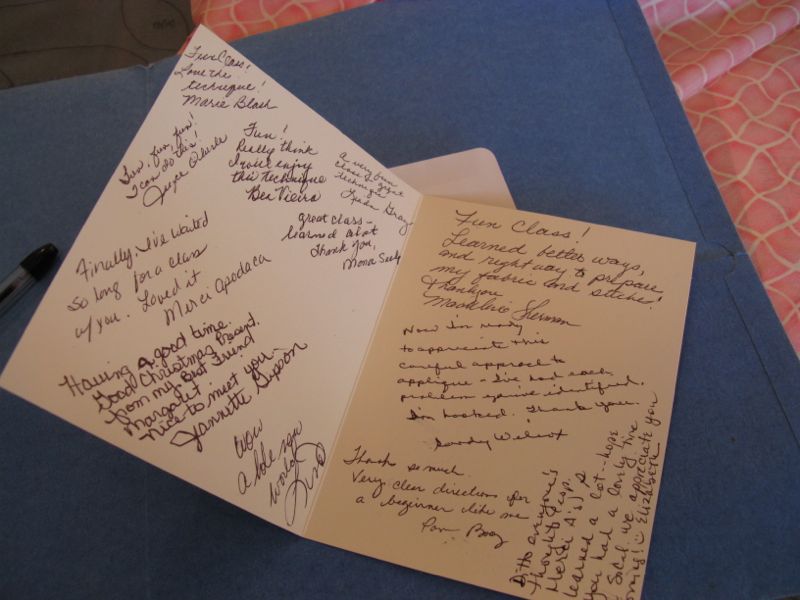 Fun Class!
Love the
technique!
Marie Blash
Fun, fun, fun!
I can do this!
Joyce
Fun!
Really think
I will enjoy
this technique
Bea Vieira
A very fun
class & great
technique
Lynda Gray
great class -
learned a lot
Thank you,
Mona Seely
Finally, I've waited
so long for a class
w/you. Loved it
Merci Apodaca
Having a good time.
Good Christmas Present
from my Best Friend
Margaret
Nice to meet you -
Jeannette Gipson
Wow
a hole new
world
Fun Class!
Learned better ways,
and right way to prepare
my fabric and stitches!
Thank you
Madeleine Sherman
Now I'm ready
to appreciate this
careful approach to
applique - I've had each
problem you've identified.
I'm hooked. Thank you.
Wilcox
Thanks so much.
Very clear directions for
a beginner like me
Pam Boaz
Ditto everyone's
thoughts (esp.
Merci A's) P.S
learned a lot -- hope
you had a lovely time
in SoCal. we appreciate you
coming! Elizabeth